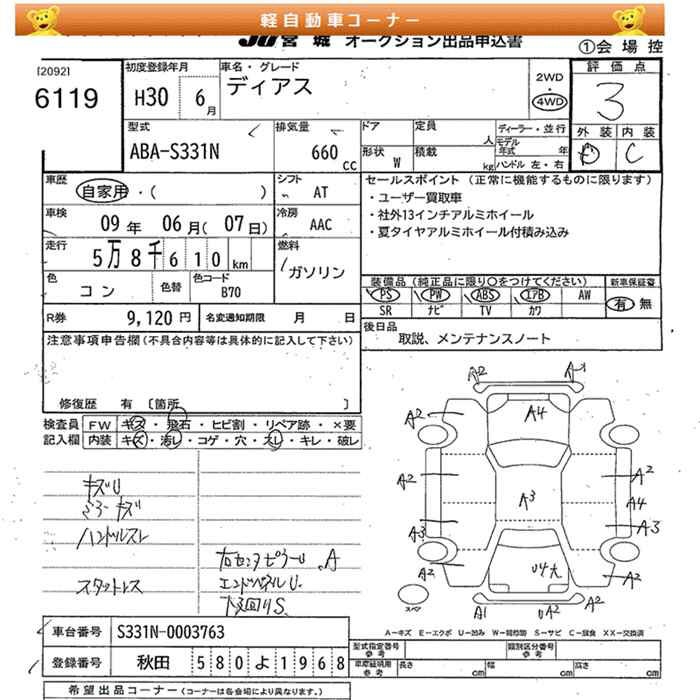 軽自動車コーナー
JU宮城 オークション出品申込書
①会場控
[2092]
6119
初度登録年月
H30 6月
車名・グレード
ディアス
2WD
・
4WD
評価点
3
外装 内装
D C
型式
ABA-S331N
排気量
660 CC
ドア 定員 人
形状 W 積載 kg
ディーラー・並行
モデル年式 年
ハンドル 左・右
車歴
自家用・( )
シフト
AT
車検
09年 06月(07日)
冷房
AAC
走行
5万8千610km
燃料
ガソリン
色
コン
色替
色コード
B70
セールスポイント (正常に機能するものに限ります)
・ユーザー買取車
・社外13インチアルミホイール
・夏タイヤアルミホイール付積み込み
装備品(純正品に限り○をつけてください)
PS PW ABS エアB AW
SR ナビ TV カワ
新車保証書
有 無
R券 9,120円 名変通知期限 月 日
後日品
取説、メンテナンスノート
注意事項申告欄(不具合内容等は具体的に記入して下さい)
修復歴 有 〔箇所 〕
検査員記入欄
FW キズ・飛石・ヒビ割・リペア跡・×要
内装 キズ・汚レ・コゲ・穴・スレ・キレ・破レ
キズU
ミラーキズ
ハンドルスレ
スタットレス
右センタピラーU.A
エンドパネルU.
下回りS.
A2 A1
A4
A2
A2 A2
A3 A4
A3 A3
A2 U4大 A2
A1 UA2
スペア
A-キズ E-エクボ U-凹み W-補修跡 S-サビ C-腐食 XX-交換済
車台番号 S331N-0003763
登録番号 秋田 580よ1968
型式指定番号 参考
類別区分番号 参考
車庫証明用 参考 長さ cm 幅 cm 高さ cm
希望出品コーナー(コーナーは各会場により異なります。)